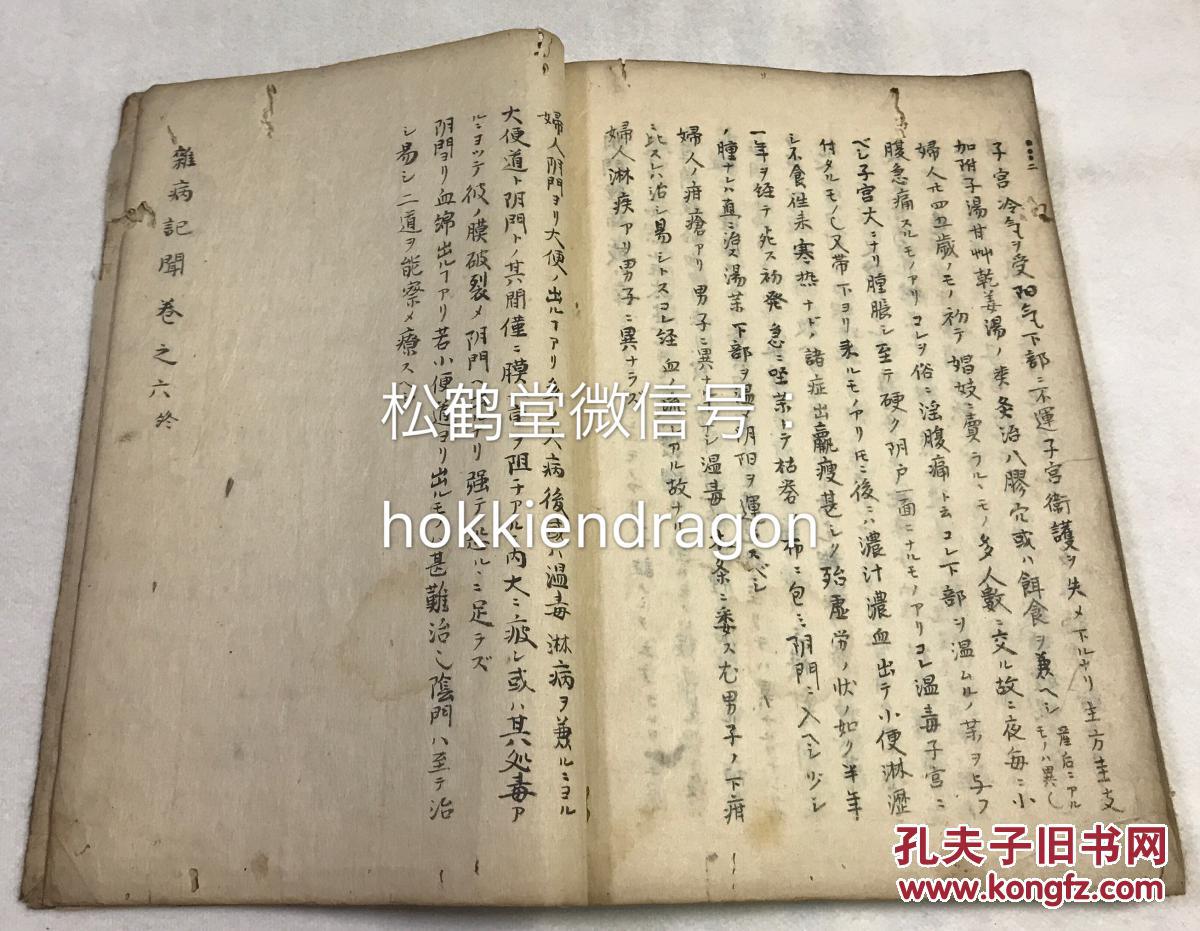 子宮冷气ヲ受阳气下部ニ不運子宮衛護ヲ失メ下ルナリ主方圭支
加附子湯甘艸乾姜湯ノ类灸治八膠穴或ハ餌食ヲ兼ヘシ
産后ニアル
モノハ異し
婦人廿四五歳ノモノ初テ娼妓ニ賣ラルヽモノ多人數ニ交ル故ニ夜每ニ小
腹急痛スルモノアリコレヲ俗ニ淫腹痛ト云コレ下部ヲ温ムルノ茱ヲ与フ
ベシ子宮大ニナリ腫脹シ至テ硬ク阴户一面ニナルモノアリコレ温毒子宮ニ
付タルモノし又帯下ヨリ来ルモノアリ後ニハ濃汁濃血出テ小便淋瀝
シ不食徃来寒热ナド諸症出羸瘦甚シク殆虚労ノ状ノ如ク半年
一年ヲ経テ死ス初発急ニ坐茱トテ枯礬布ニ包ミ阴門ニ入ヘシ少シ
ノ腫ナレハ直ニ治ス湯茱下部ヲ温阴阳ヲ運スベシ
婦人ノ疳瘡アリ男子ニ異ナ シ温毒 条ニ委ス尤男子ノ下疳
ニ比スレハ治シ易シトスコレ経血 アル故ナリ
婦人淋疾アリ男子ニ異ナラズ
婦人阴門ヨリ大便ノ出ルヿアリ 大病後或ハ温毒淋病ヲ兼ルニヨル
大便道ト阴門トノ其間僅ニ膜 ヲ阻テアル内大ニ疲レ或ハ其処毒ア
ルニヨッテ彼ノ膜破裂メ阴門 リ强テ ニ足ラズ
阴門ヨリ血綿出ルヿアリ若小便道ヨリ出ルモノ甚難治し陰門ハ至テ治
シ易シ二道ヲ能察メ療スヘシ
雜病記聞卷之六終
松鹤堂微信号：
hokkiendragon
孔夫子旧书网
www.kongfz.com